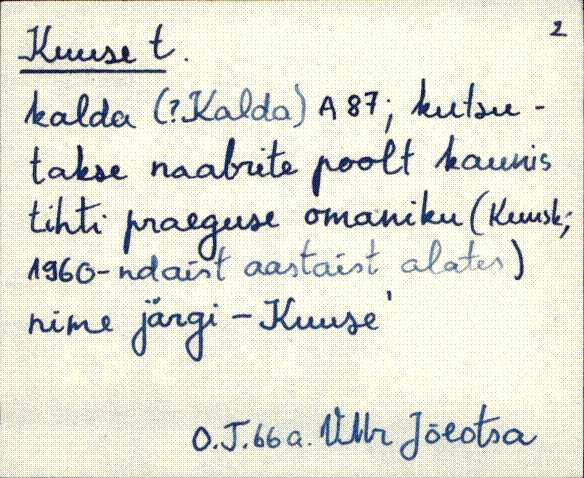 2
Kuuse t.
kalda (?Kalda) A 87; kutsu-
takse naabrite poolt kaunis
tihti praeguse omaniku (Kuusk;
1960-ndaist aastaist alates)
nime järgi – Kuuse'
O.J. 66 a. VMr Jõeotsa